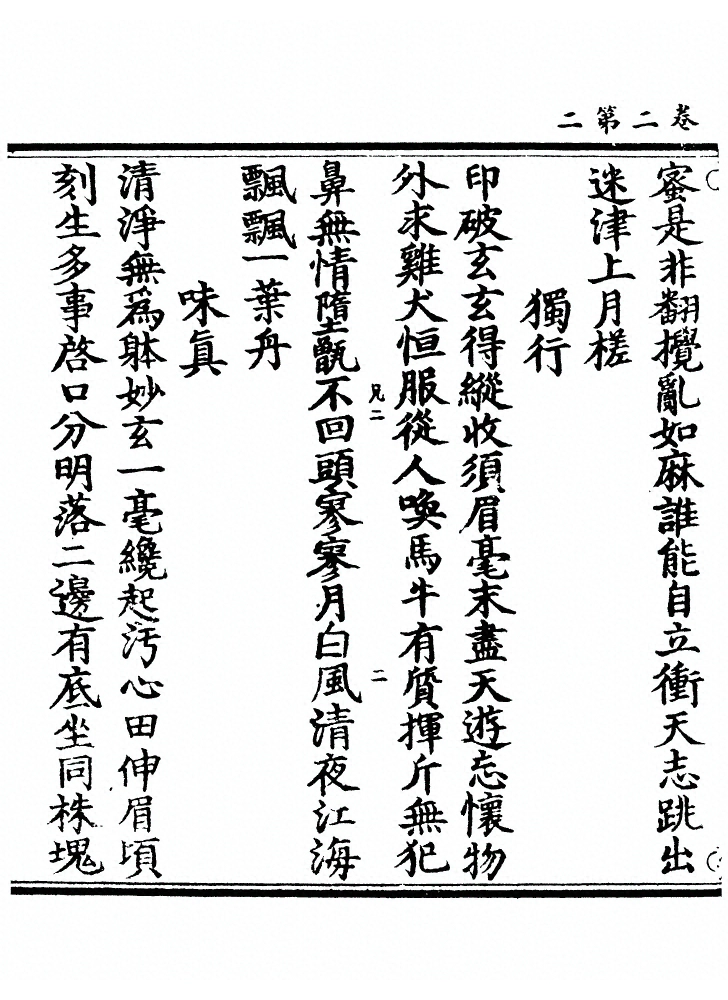 卷二第二
蜜是非翻攪亂如麻誰能自立衝天志跳出
迷津上月槎
獨行
印破玄玄得縱收須眉毫末盡天遊忘懷物
外求雞犬恒服從人喚馬牛有質揮斤無犯
兄二
二
鼻無情墮甑不回頭寥寥月白風清夜江海
飄飄一葉舟
味眞
清淨無爲躰妙玄一毫纔起汚心田伸眉頃
刻生多事啓口分明落二邊有底坐同株塊